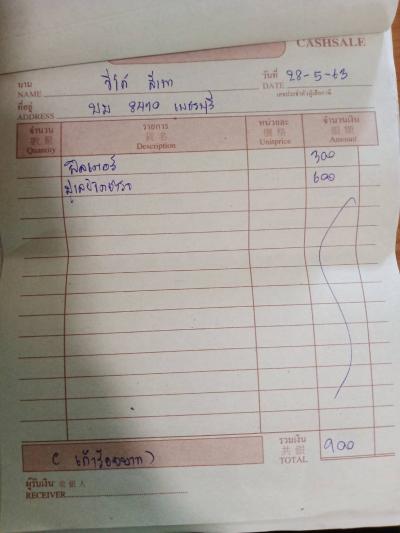 CASHSALE
นาม NAME วีโก้ สีเทา วันที่ DATE 28-5-63
เลขประจำตัวผู้เสียภาษี
ที่อยู่ ADDRESS บม 8470 เพชรบุรี
จำนวน รายการ หน่วยละ จำนวนเงิน
數量 貨名 價格 銀額
Quantity Description Unitprice Amount
ฟิลเตอร์ 300
600
รวมเงิน
共銀
TOTAL 900
( เก้าร้อยบาท )
ผู้รับเงิน 收銀人
RECEIVER